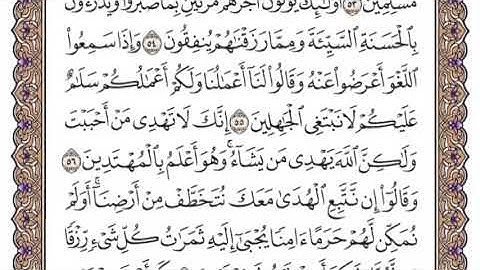 مُسْلِمِينَ ٥٣ أُو۟لَٰٓئِكَ يُؤْتَوْنَ أَجْرَهُم مَّرَّتَيْنِ بِمَا صَبَرُوا۟ وَيَدْرَءُونَ
بِٱلْحَسَنَةِ ٱلسَّيِّئَةَ وَمِمَّا رَزَقْنَٰهُمْ يُنفِقُونَ ٥٤ وَإِذَا سَمِعُوا۟
ٱللَّغْوَ أَعْرَضُوا۟ عَنْهُ وَقَالُوا۟ لَنَآ أَعْمَٰلُنَا وَلَكُمْ أَعْمَٰلُكُمْ سَلَٰمٌ
عَلَيْكُمْ لَا نَبْتَغِى ٱلْجَٰهِلِينَ ٥٥ إِنَّكَ لَا تَهْدِى مَنْ أَحْبَبْتَ
وَلَٰكِنَّ ٱللَّهَ يَهْدِى مَن يَشَآءُ ۚ وَهُوَ أَعْلَمُ بِٱلْمُهْتَدِينَ ٥٦
وَقَالُوٓا۟ إِن نَّتَّبِعِ ٱلْهُدَىٰ مَعَكَ نُتَخَطَّفْ مِنْ أَرْضِنَآ ۚ أَوَلَمْ
نُمَكِّن لَّهُمْ حَرَمًا ءَامِنًا يُجْبَىٰٓ إِلَيْهِ ثَمَرَٰتُ كُلِّ شَىْءٍ رِّزْقًا